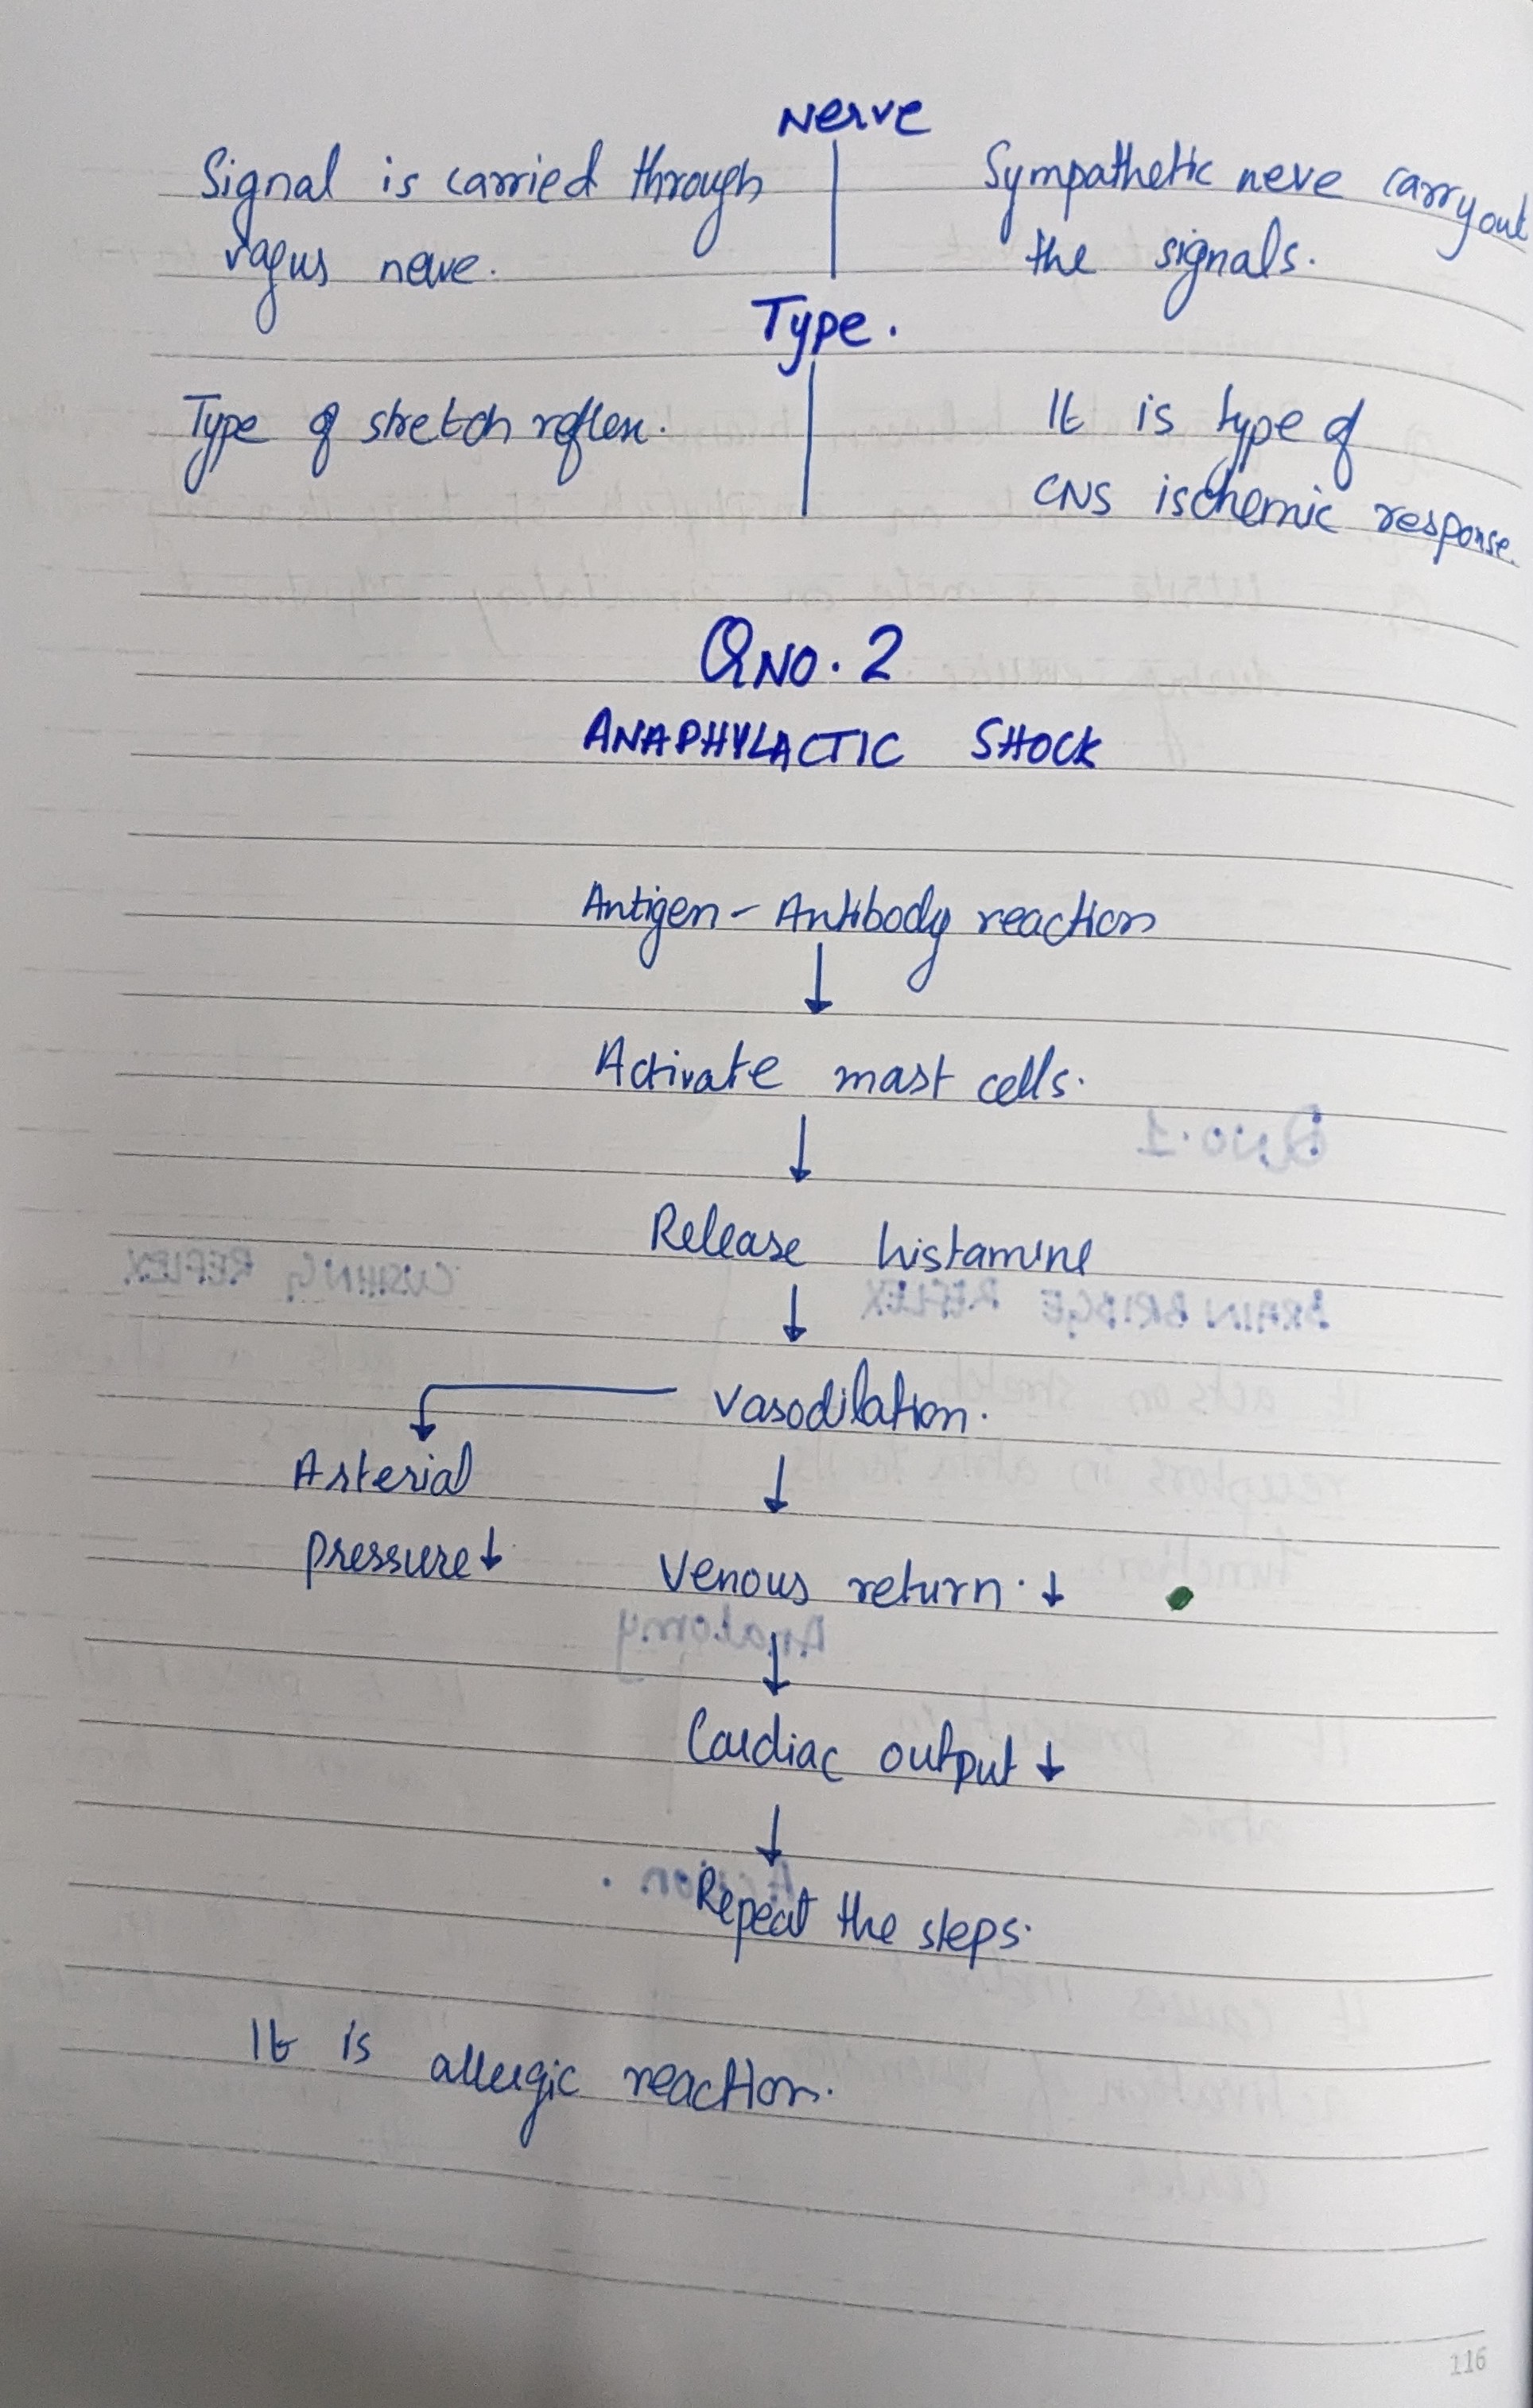 Nerve
Signal is carried through
vagus nerve.
Sympathetic neve carryout
the signals.
Type.
Type of stretch reflex.
It is type of
CNS ischemic response.
QNO.2
ANAPHYLACTIC SHOCK
Antigen - Antibody reaction
↓
Activate mast cells.
↓
Release histamine
↓
vasodilation.
↓
Arterial
pressure↓
Venous return.↓
↓
Cardiac output↓
↓
Repeat the steps.
It is allergic reaction.
116